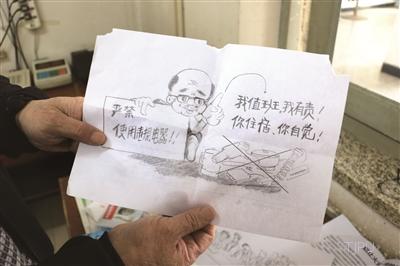 严禁
使用违规电器!!
我值班,我有责!
你住宿、你自觉!